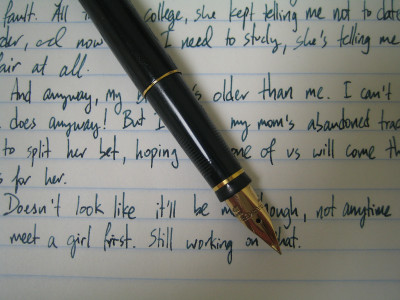 fault. All college, she kept telling me not to date
and now I need to study, she's telling me
fair at all.
And anyway, my 's older than me. I can't
does anyway! But I my mom's abandoned
to split her bet, hoping one of us will come
for her.
Doesn't look like it'll be me though, not anytime
meet a girl first. Still working on that.